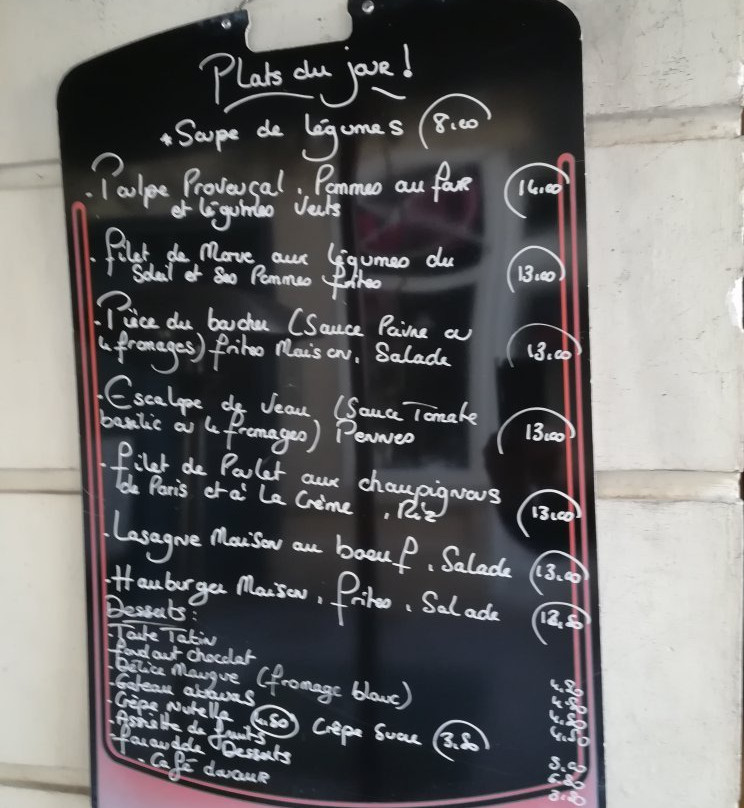 Plats du jour !
*Soupe de légumes 8.00
. Poulpe Provençal, Pommes au four 14.00
et légumes Verts
. filet de Morue aux légumes du
Soleil et Ses Pommes frites 13.00
. Pièce du boucher (Sauce Poivre ou
4 fromages) frites Maison, Salade 13.00
. Escalope de Veau (Sauce Tomate
basilic ou 4 fromages) Pennes 13.00
. filet de Poulet aux champignons
de Paris et à La Crème, Riz 13.00
. Lasagne Maison au boeuf, Salade 13.00
. Hamburger Maison, frites, Salade 12.50
Desserts :
- Tarte Tatin
- fondant chocolat
- Délice Mangue (fromage blanc) 4.50
- Gateau ananas 4.50
- Crêpe Nutella 4.50 Crêpe Sucre 3.50 4.50
- Assiette de fruits 4.50
- farandole Desserts
- Café